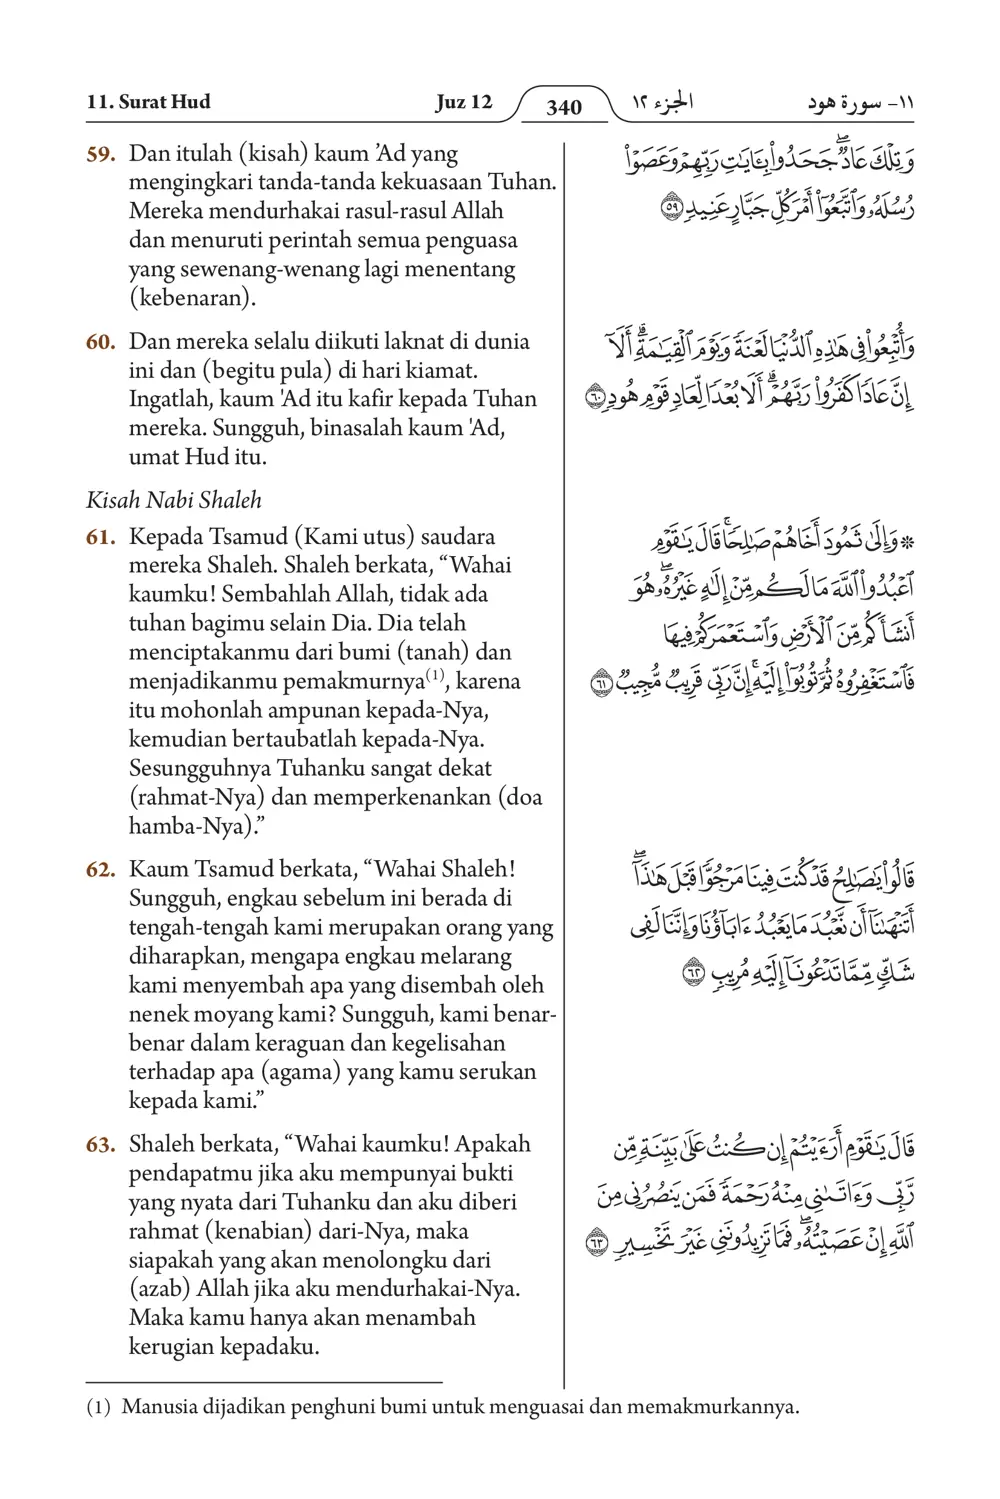 11. Surat Hud Juz 12 340 الجزء ١٢ ١١- سورة هود
59. Dan itulah (kisah) kaum ’Ad yang
mengingkari tanda-tanda kekuasaan Tuhan.
Mereka mendurhakai rasul-rasul Allah
dan menuruti perintah semua penguasa
yang sewenang-wenang lagi menentang
(kebenaran).
وَتِلْكَ عَادٌۖ جَحَدُوا۟ بِـَٔايَٰتِ رَبِّهِمْ وَعَصَوْا۟
رُسُلَهُۥ وَٱتَّبَعُوٓا۟ أَمْرَ كُلِّ جَبَّارٍ عَنِيدٍ ٥٩
60. Dan mereka selalu diikuti laknat di dunia
ini dan (begitu pula) di hari kiamat.
Ingatlah, kaum 'Ad itu kafir kepada Tuhan
mereka. Sungguh, binasalah kaum 'Ad,
umat Hud itu.
وَأُتْبِعُوا۟ فِى هَٰذِهِ ٱلدُّنْيَا لَعْنَةً وَيَوْمَ ٱلْقِيَٰمَةِۗ أَلَآ
إِنَّ عَادًا كَفَرُوا۟ رَبَّهُمْۗ أَلَا بُعْدًا لِّعَادٍ قَوْمِ هُودٍ ٦٠
Kisah Nabi Shaleh
61. Kepada Tsamud (Kami utus) saudara
mereka Shaleh. Shaleh berkata, “Wahai
kaumku! Sembahlah Allah, tidak ada
tuhan bagimu selain Dia. Dia telah
menciptakanmu dari bumi (tanah) dan
menjadikanmu pemakmurnya(1), karena
itu mohonlah ampunan kepada-Nya,
kemudian bertaubatlah kepada-Nya.
Sesungguhnya Tuhanku sangat dekat
(rahmat-Nya) dan memperkenankan (doa
hamba-Nya).”
۞ وَإِلَىٰ ثَمُودَ أَخَاهُمْ صَٰلِحًاۚ قَالَ يَٰقَوْمِ
ٱعْبُدُوا۟ ٱللَّهَ مَا لَكُم مِّنْ إِلَٰهٍ غَيْرُهُۥۖ هُوَ
أَنشَأَكُم مِّنَ ٱلْأَرْضِ وَٱسْتَعْمَرَكُمْ فِيهَا
فَٱسْتَغْفِرُوهُ ثُمَّ تُوبُوٓا۟ إِلَيْهِۚ إِنَّ رَبِّى قَرِيبٌ مُّجِيبٌ ٦١
62. Kaum Tsamud berkata, “Wahai Shaleh!
Sungguh, engkau sebelum ini berada di
tengah-tengah kami merupakan orang yang
diharapkan, mengapa engkau melarang
kami menyembah apa yang disembah oleh
nenek moyang kami? Sungguh, kami benar-
benar dalam keraguan dan kegelisahan
terhadap apa (agama) yang kamu serukan
kepada kami.”
قَالُوا۟ يَٰصَٰلِحُ قَدْ كُنتَ فِينَا مَرْجُوًّا قَبْلَ هَٰذَآۖ
أَتَنْهَىٰنَآ أَن نَّعْبُدَ مَا يَعْبُدُ ءَابَآؤُنَا وَإِنَّنَا لَفِى
شَكٍّ مِّمَّا تَدْعُونَآ إِلَيْهِ مُرِيبٍ ٦٢
63. Shaleh berkata, “Wahai kaumku! Apakah
pendapatmu jika aku mempunyai bukti
yang nyata dari Tuhanku dan aku diberi
rahmat (kenabian) dari-Nya, maka
siapakah yang akan menolongku dari
(azab) Allah jika aku mendurhakai-Nya.
Maka kamu hanya akan menambah
kerugian kepadaku.
قَالَ يَٰقَوْمِ أَرَءَيْتُمْ إِن كُنتُ عَلَىٰ بَيِّنَةٍ مِّن
رَّبِّى وَءَاتَىٰنِى مِنْهُ رَحْمَةً فَمَن يَنصُرُنِى مِنَ
ٱللَّهِ إِنْ عَصَيْتُهُۥۖ فَمَا تَزِيدُونَنِى غَيْرَ تَخْسِيرٍ ٦٣
(1) Manusia dijadikan penghuni bumi untuk menguasai dan memakmurkannya.